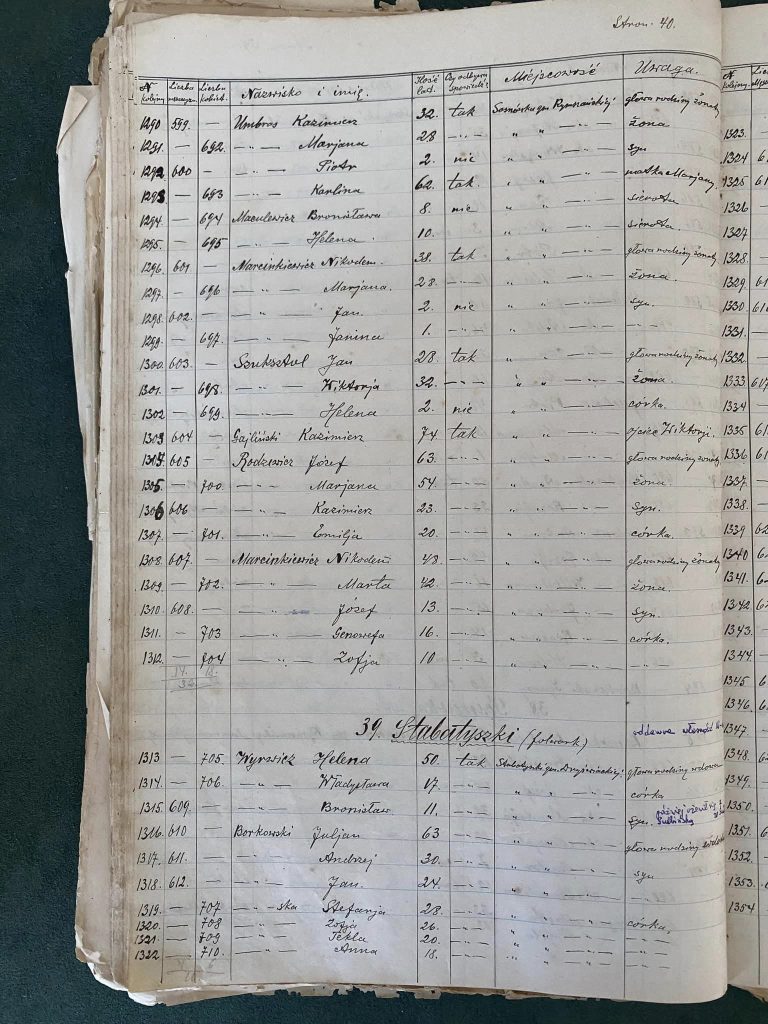 Stron. 40.
N kolejny Liczba męzczyzn Liczba kobiet. Nazwisko i imię. Ilość lat. Czy odbywał spowiedź Miejscowość Uwaga. N kolejny
1290 599. Umbras Kazimierz 32. tak głowa rodziny żonaty
1291. — 692. — „ — Marjana 28 — „ — „ „ — „ — żona 1323.
1292 600 — — „ — Piotr 2. nie „ „ — „ — syn 1324
1293 — 693 — „ — Karlina 62. tak „ „ — „ — matka Marjany 1325
1294. — 694 Maculewicz Bronisława 8. nie „ „ — „ — sierota 1326
1295. — 695 — „ — Helena 10. — „ — „ „ — „ — sierota 1327
1296. 601 — Marcinkiewicz Nikodem. 38. tak „ „ — „ — głowa rodziny żonaty 1328.
1297. — 696 — „ — Marjana. 28. — „ — „ „ — „ — żona. 1329.
1298. 602. — — „ — Jan. 2. nie „ „ — „ — syn. 1330.
1299. — 697. — „ — Janina 1. — „ — „ „ — „ — — „ — 1331.
1300. 603. — Szuksztul Jan 28. tak „ „ — „ — głowa rodziny żonaty 1332.
1301. — 698. — „ — Wiktorja 32. — „ — „ „ — „ — żona 1333
1302 — 699. — „ — Helena 2. nie „ „ — „ — córka. 1334
1303 604 — Gajliński Kazimierz 74. tak „ „ — „ — ojciec Wiktorji. 1335
1304. 605 — Rodziewicz Józef 63. — „ — „ „ — „ — głowa rodziny żonaty 1336.
1305. — 700. — „ — Marjana 54. — „ — „ „ — „ — żona. 1337.
1306 606 — — „ — Kazimierz 23. — „ — „ „ — „ — syn. 1338.
1307. — 701. — „ — Emilja 20. — „ — „ „ — „ — córka. 1339
1308. 607. — Marcinkiewicz Nikodem 43. — „ — „ „ — „ — głowa rodziny żonaty 1340
1309. — 702. — „ — Marta 42. — „ — „ „ — „ — żona. 1341.
1310. 608. — — „ — Józef 13. — „ — „ „ — „ — syn. 1342.
1311. — 703 — „ — Genowefa 16. — „ — „ „ — „ — córka. 1343.
1312. — 704 — „ — Zofja 10 — „ — „ „ — „ — — „ — 1344.
1345
1346.
39. Stabatyszki (folwark) 1347.
1313 — 705. Wyrwicz Helena 50. tak głowa rodziny wdowa 1348.
1314. — 706. — „ — Władysława 17. — „ — „ „ — „ — córka 1349.
1315. 609. — — „ — Bronisław 11. — „ — „ „ — „ — syn. 1350.
1316. 610 — Borkowski Juljan 63 — „ — „ „ — „ — głowa rodziny 1351.
1317. 611. — — „ — Andrzej 30. — „ — „ „ — „ — syn 1352.
1318. 612. — — „ — Jan. 24. — „ — „ „ — „ — — „ — 1353.
1319. — 707 — „ — ska Stefanja 28. — „ — „ „ — „ — córka. 1354
1320. — 708 — „ — Zofja 26. — „ — „ „ — „ — — „ —
1321. — 709 — „ — Tekla 20. — „ — „ „ — „ — — „ —
1322. — 710. — „ — Anna 18. — „ — „ „ — „ — — „ —